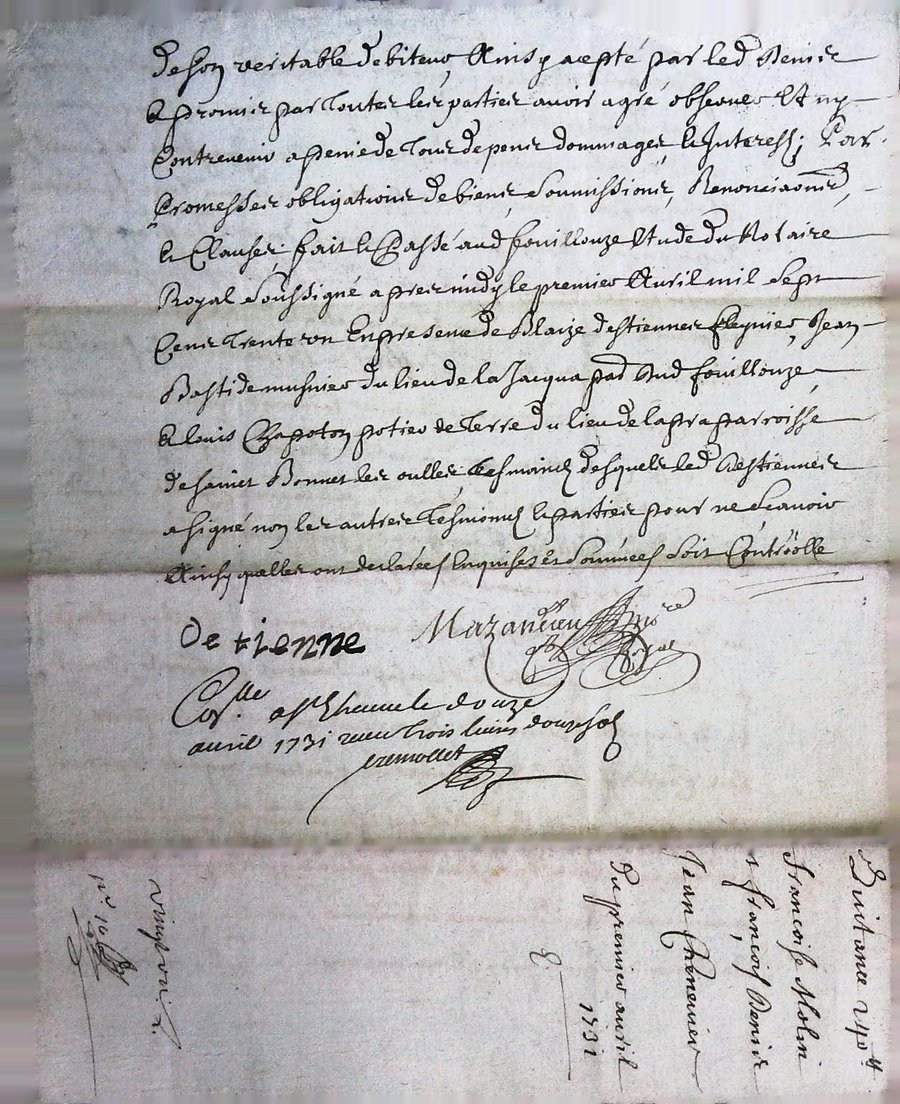 de son veritable debiteur, Ainsy acpté par led Denis
et promis par toutes les parties avoir agré observer Et ny
Contrevenir a peine de tous depens dommages, et Interests; Par
Promesses obligations de biens Soumissions, Renonciaons
et Clauses; fait et Passé aud fouillouze Etude du Notaire
Royal Soussigné apres midy le premier Avril mil Sept
Cens trente un En presence de Blaize destiennes, Jean
Bastide musnier du lieu de la Jacqua psse dud fouillouze
et louis Chapoton potier de terre du lieu de lapra parroisse
de sainct Bonnet les oulles, tesmoins desquels led destiennes
a signé non les autres tesmoins et parties pour ne Scavoir
Ainsy quelles ont declarées Enquises et Sommées Soit Controolle
De tienne
Mazandieu nore
Royal
Coslle a st Rheume le douze
avril 1731 receu trois livres douze sols
Quitance 240 lt
francoise Molin
a françois Denis
Jean Chenevier
Du premier avril
1731